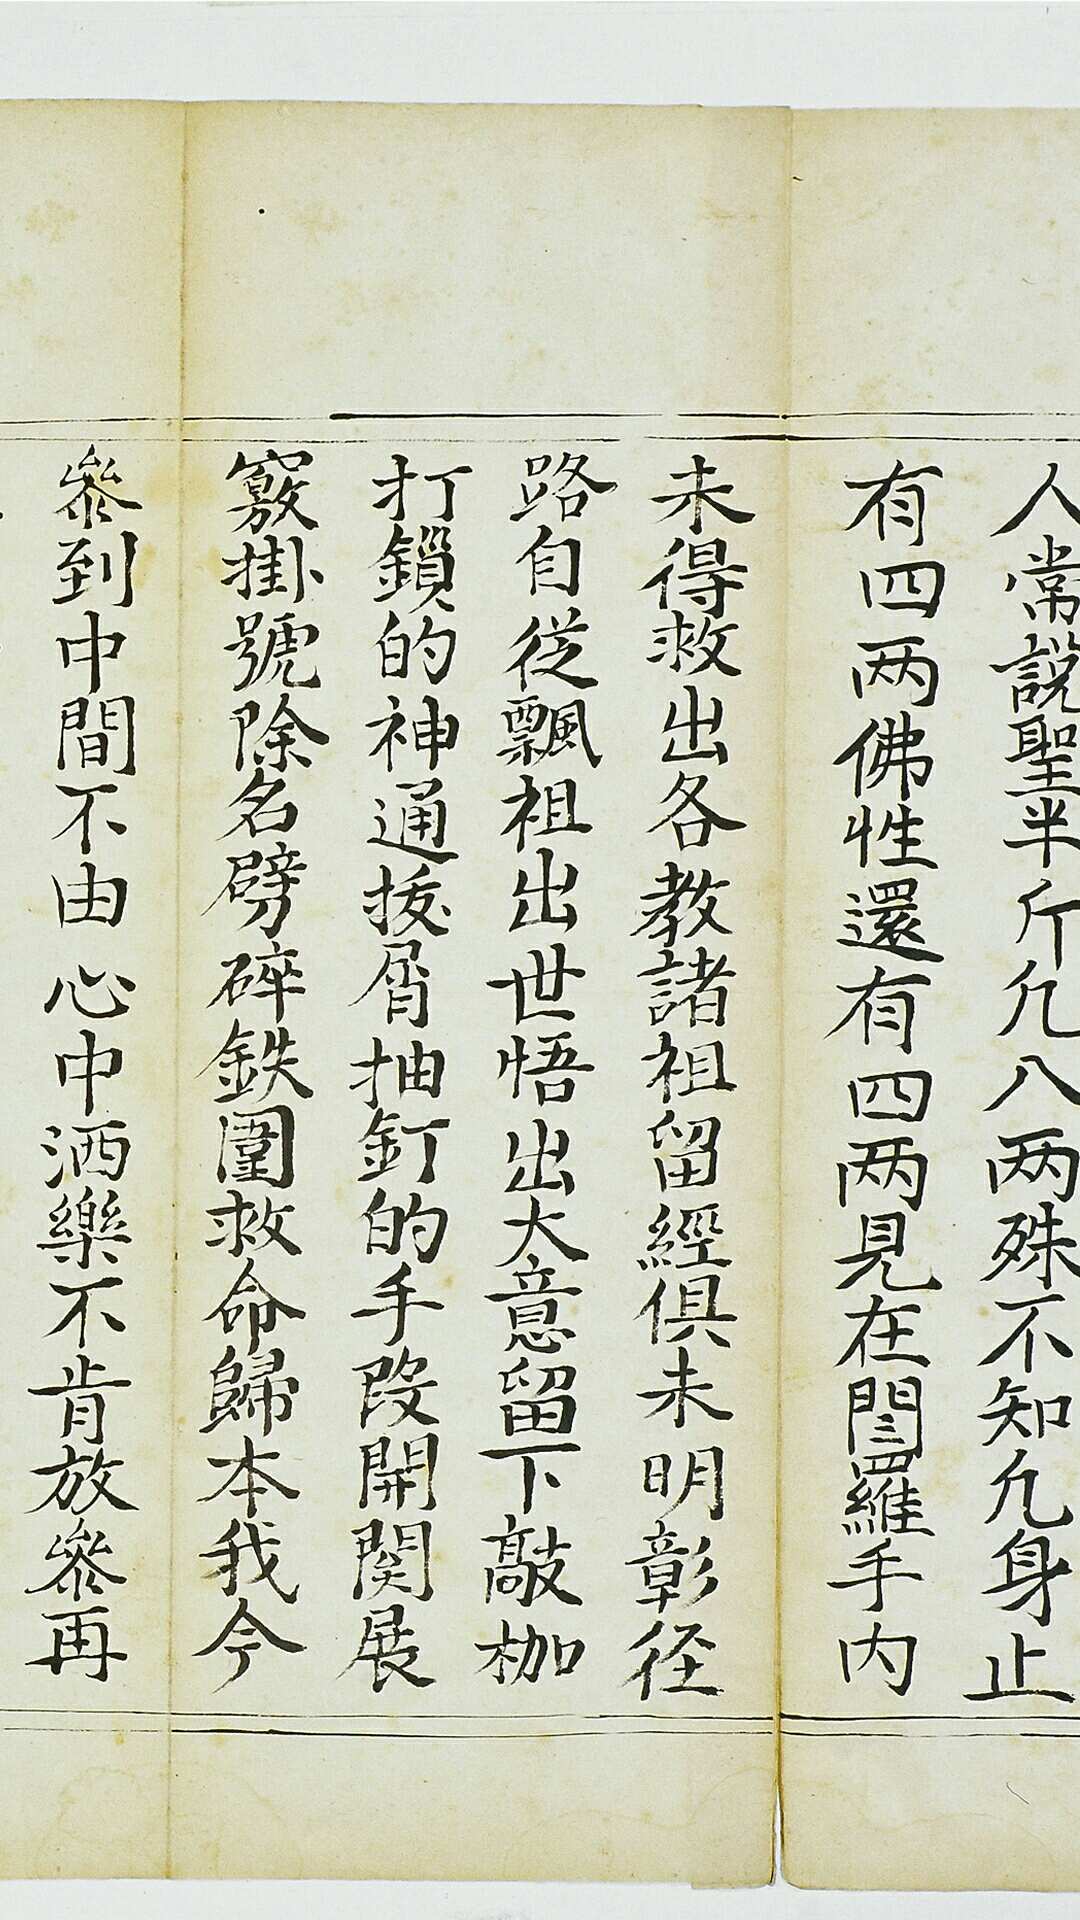 人常說聖半斤凢八两殊不知凢身止
有四两佛性還有四两見在閻羅手内
未得救出各教諸祖留經俱未明彰径
路自従飄祖出世悟出大意留下敲枷
打鎖的神通拔屑抽釘的手段開関展
竅掛號除名劈碎鉄圍救命歸本我今
叅到中間不由心中洒樂不肯放叅再